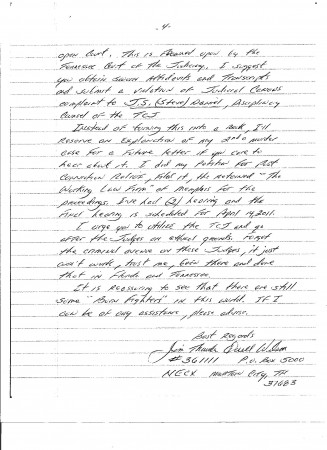 -4-
open Court. This is frowned upon by the
Tennessee Court of the Judiciary. I suggest
you obtain sworn Affidavits and Transcripts
and submit a violation of Judicial Canons
complaint to J.S. (Steve) Daniel, Disciplinary
Counsel of the TCJ
Instead of turning this into a book, I'll
reserve an explanation of my 2nd murder
case for a future letter if you care to
hear about it. I did my Petition for Post
Conviction Relief, filed it, the retained "The
Working Law Firm" of Memphis for the
proceedings. I've had (2) hearing and the
final hearing is scheduled for April 14, 2011.
I urge you to utilize the TCJ and go
after the Judges on ethical grounds. Forget
the criminal avenue on these Judges, it just
won't work, trust me, been there and done
that in Florida and Tennessee.
It is reassuring to see that there are still
some "Fighters" in this world. If I
can be of any assistance, please advise.
Best Regards
#361111 P.O. Box 5000
NECX Mountain City, TN
37683